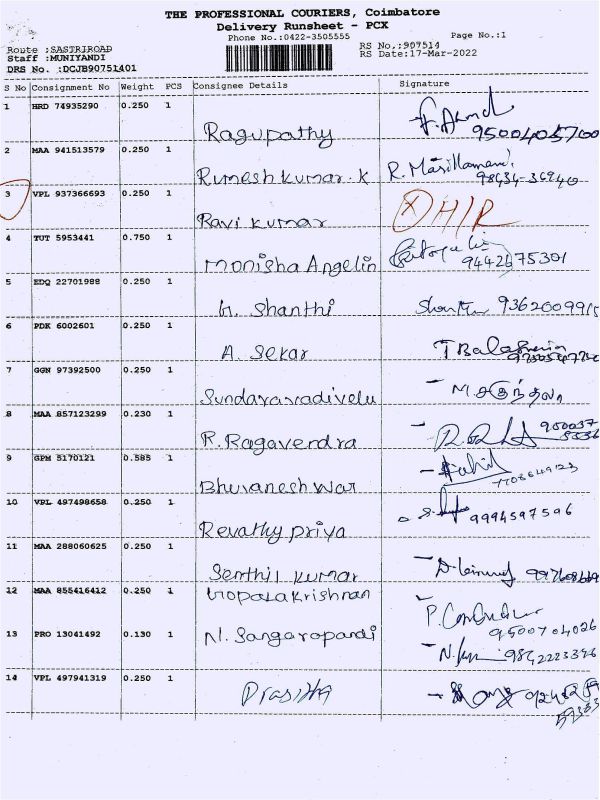 THE PROFESSIONAL COURIERS, Coimbatore
Delivery Runsheet - PCX
Phone No.:0422-3505555 Page No.:1
Route :SASTRIROAD RS No.:907514
Staff :MUNIYANDI RS Date:17-Mar-2022
DRS No. :DCJB90751401
S No Consignment No Weight PCS Consignee Details Signature
1 HRD 74935290 0.250 1
Ragupathy 9500405700
2 MAA 941513579 0.250 1
Rumesh kumar.k R. Masillamani
98434-36940
3 VPL 937366693 0.250 1
Ravi kumar X H/R
4 TUT 5953441 0.750 1
Monisha Angelin 9442675301
5 EDQ 22701988 0.250 1
G. Shanthi 9362009915
6 PDK 6002601 0.250 1
A. Sekar
7 GGN 97392500 0.250 1
Sundaravadivelu
8 MAA 857123299 0.230 1
R. Ragavendra
9 GPM 5170121 0.585 1
Bhuvaneshwar
10 VPL 497498658 0.250 1
Revathy priya 9994597596
11 MAA 288060625 0.250 1
Senthil kumar
12 MAA 855416412 0.250 1
Gopalakrishnan
9500704026
13 PRO 13041492 0.130 1
N. Sangaropandi 9842223396
14 VPL 497941319 0.250 1